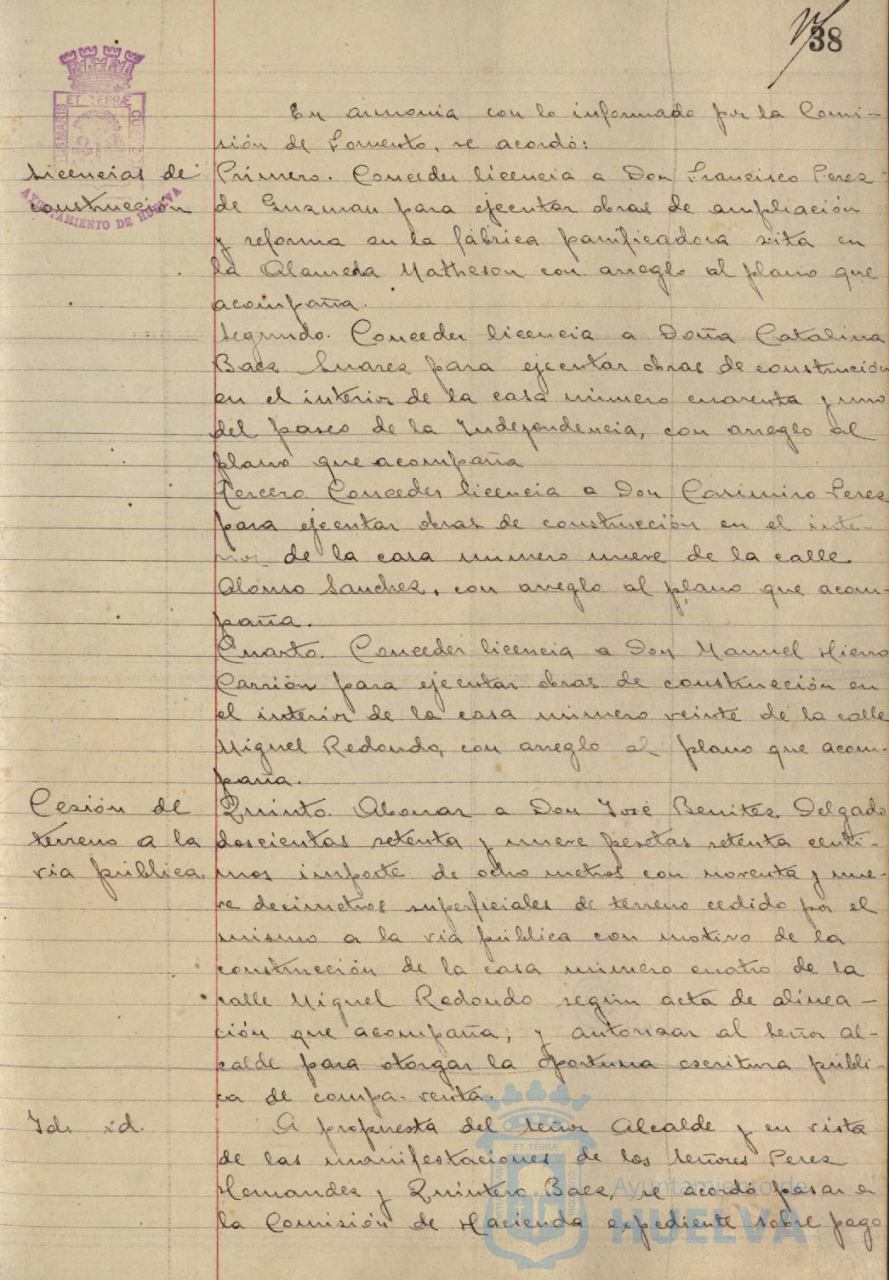 38
En armonia con lo informado por la Comi-
sión de Fomento, se acordó:
Licencias de
construcción
Primero. Conceder licencia a Don Francisco Perez
de Guzman para ejecutar obras de ampliación
y reforma en la fábrica panificadora sita en
la Alameda Matheson con arreglo al plano que
acompaña.
Segundo. Conceder licencia a Doña Catalina
Baez Suarez para ejecutar obras de construcción
en el interior de la casa número cuarenta y uno
del paseo de la Independencia, con arreglo al
plano que acompaña
Tercero. Conceder licencia a Don Casimiro Perez
para ejecutar obras de construcción en el inte-
rior de la casa número nueve de la calle
Alonso Sanchez, con arreglo al plano que acom-
paña.
Cuarto. Conceder licencia a Don Manuel Hierro
Carrión para ejecutar obras de construcción en
el interior de la casa número veinte de la calle
Miguel Redondo, con arreglo al plano que acom-
paña.
Cesión de
terreno a la
via pública.
Quinto. Abonar a Don José Benitez Delgado
doscientas setenta y nueve pesetas setenta centi-
mos importe de ocho metros con noventa y nue-
ve decimetros superficiales de terreno cedido por el
mismo a la via pública con motivo de la
construcción de la casa número cuatro de la
calle Miguel Redondo según acta de alinea-
ción que acompaña; y autorizar al señor al-
calde para otorgar la oportuna escritura públi-
ca de compa-venta.
Id. id.
A propuesta del señor Alcalde y en vista
de las manifestaciones de los señores Perez
Hernandez y Quintero Baez, se acordó pasar a
la Comisión de Hacienda expediente sobre pago
ET TERRÆ
AYUNTAMIENTO DE HUELVA
ET TERRÆ
Ayuntamiento de
HUELVA